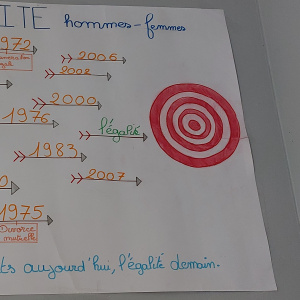 ITÉ hommes-femmes
1972
2006
2002
2000
1976
l'égalité
1983
2007
1975
Divorce
mutuelle
aujourd'hui, l'égalité demain.